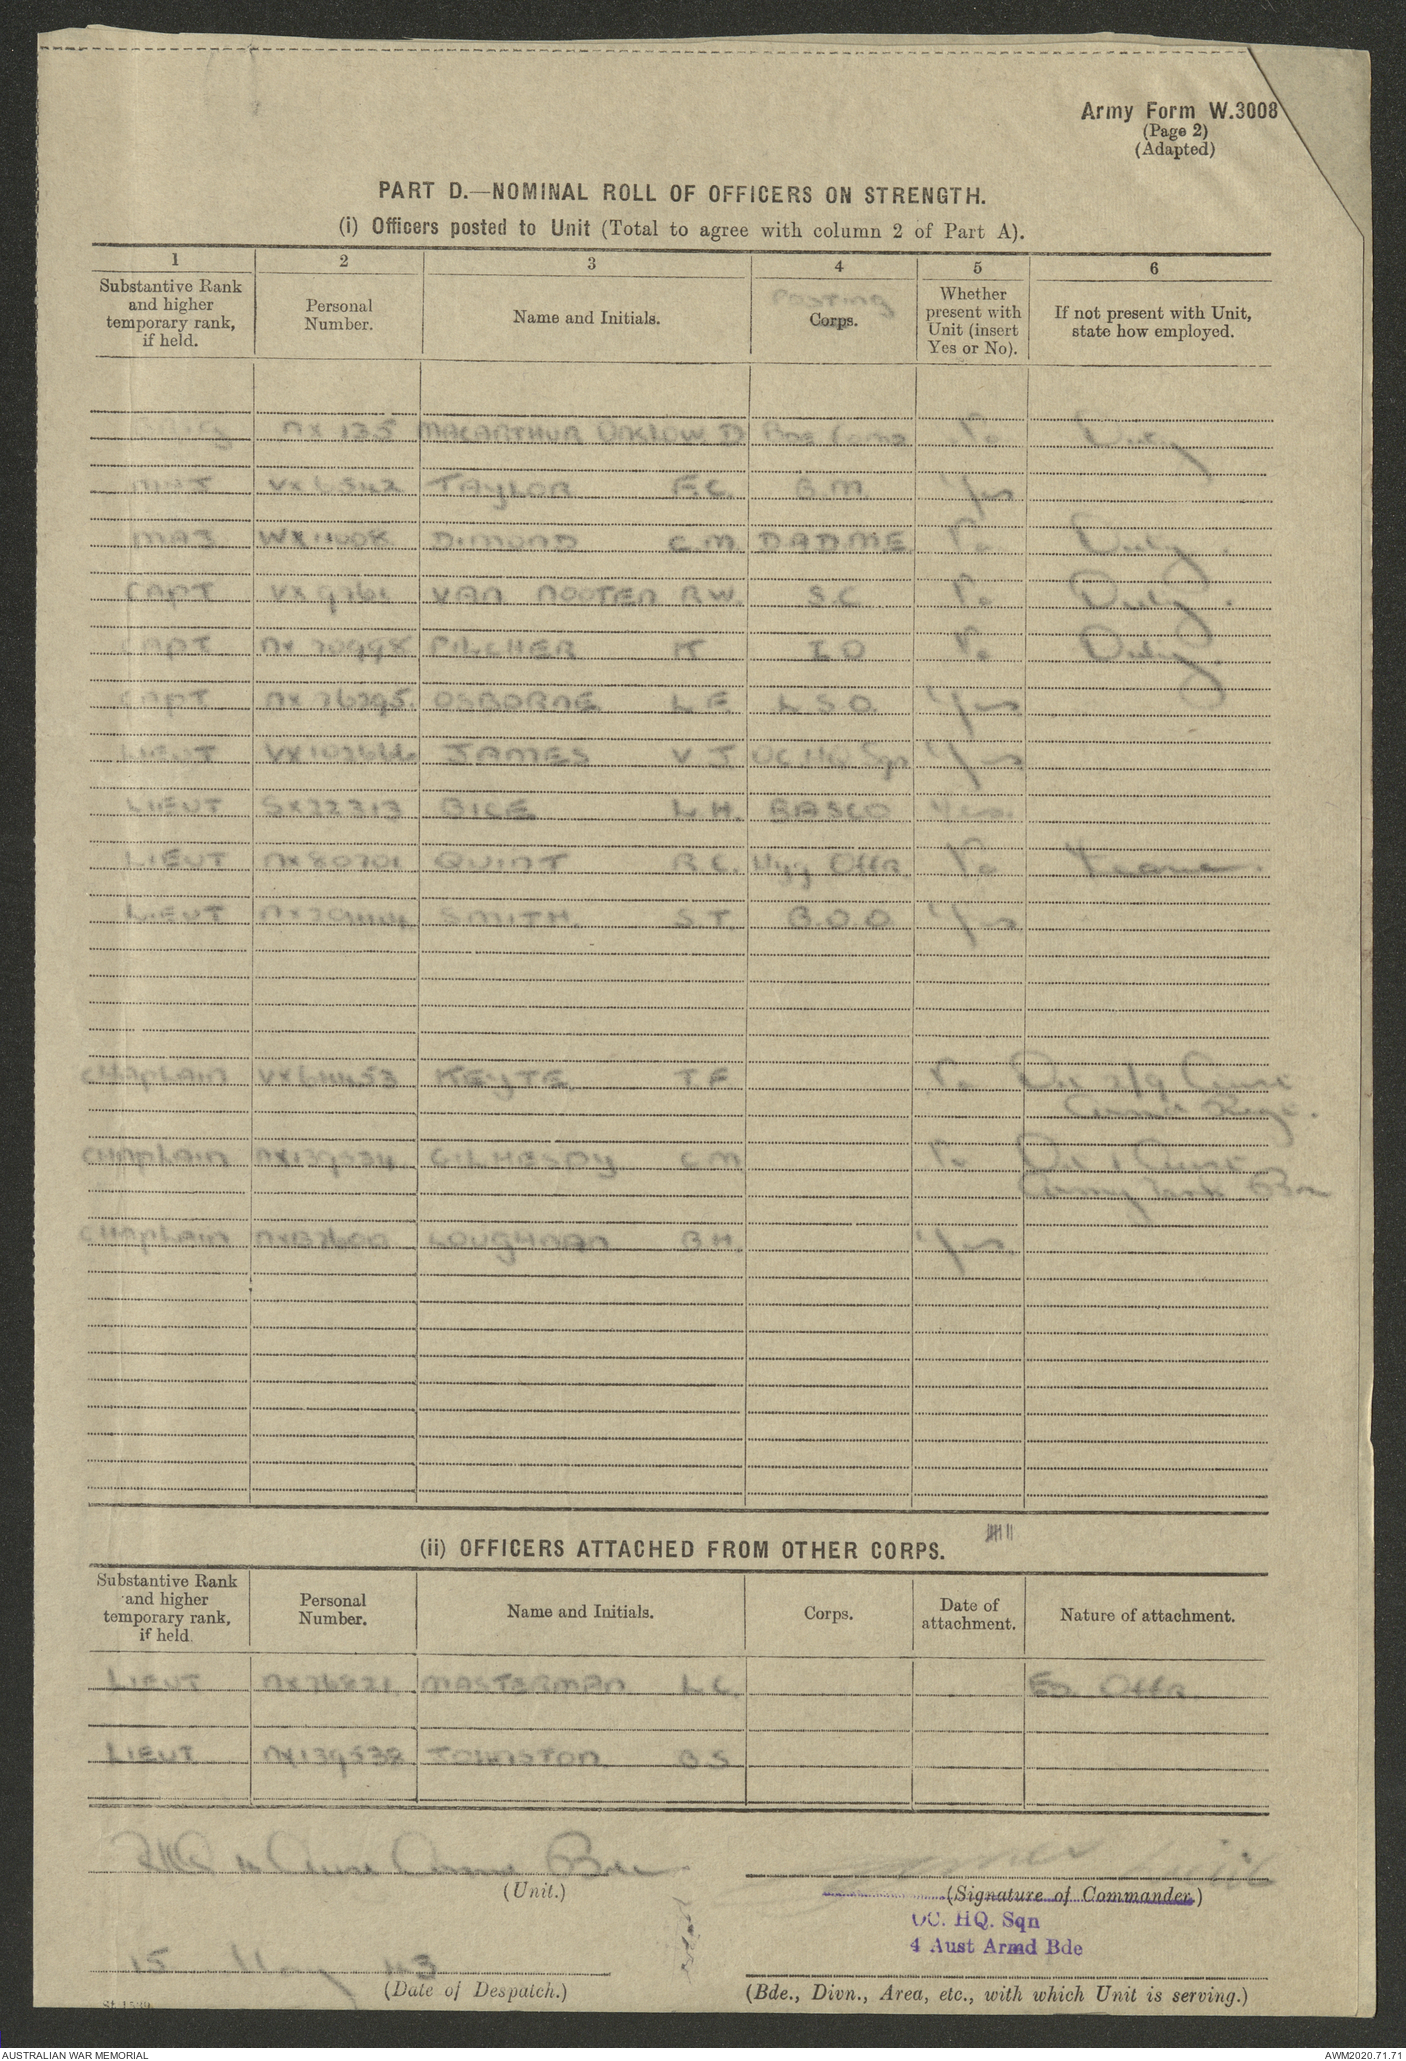 Army Form W.3008
(Page 2)
(Adapted)
PART D.—NOMINAL ROLL OF OFFICERS ON STRENGTH.
(i) Officers posted to Unit (Total to agree with column 2 of Part A).
1 2 3 4 5 6
Substantive Rank and higher temporary rank, if held. Personal Number. Name and Initials. Posting Corps. Whether present with Unit (insert Yes or No). If not present with Unit, state how employed.
NX 135 MACARTHUR ONSLOW D Bde Comd No Duty
MAJ VX6542 TAYLOR F.C. B.M. Yes
MAJ WX11008 DIMOND C.M. D.A.D.M.E. No Duty.
CAPT VX9761 VAN NOOTEN R.W. S.C No Duty.
CAPT NX70998 PILCHER K I O No Duty.
CAPT NX76295 OSBORNE L.F. L.S.O. Yes
LIEUT JAMES V J OC HQ Sqn Yes
LIEUT SX22313 BICE L.H. BASCO Yes.
LIEUT NX80701 QUINT R.C. Hyg Offr No Leave.
LIEUT SMITH. S.T. B.O.O Yes
CHAPLAIN VX64453 KEYTE T.F. No Det 2/9 Aust
Armd Regt.
CHAPLAIN NX139534 GILHESPY C M No Det 1 Aust
Army Tank Bn
CHAPLAIN LOUGHNAN B.H. Yes.
(ii) OFFICERS ATTACHED FROM OTHER CORPS.
Substantive Rank and higher temporary rank, if held. Personal Number. Name and Initials. Corps. Date of attachment. Nature of attachment.
LIEUT NX76821 MASTERMAN L.C. Ed Offr
LIEUT NX139538 JOHNSTON B S
HQ 4 Aust Armd Bde
(Unit.)
(Signature of Commander.)
OC. HQ. Sqn
4 Aust Armd Bde
15 May 43
(Date of Despatch.)
(Bde., Divn., Area, etc., with which Unit is serving.)
AUSTRALIAN WAR MEMORIAL
AWM2020.71.71